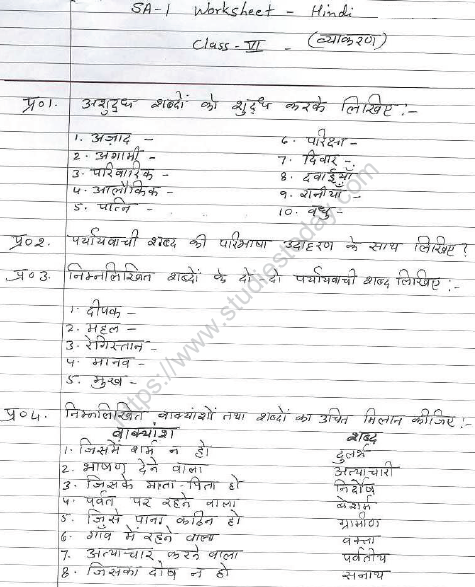 SA-1 Worksheet - Hindi
Class - VI (व्याकरण)
प्र०1. अशुद्ध शब्दों को शुद्ध करके लिखिए :-
1. अज़ाद - 6. परिक्षा -
2. अगामी - 7. दिवार -
3. परिवारिक - 8. दवाईयाँ -
4. आलौकिक - 9. रानीयाँ -
5. पत्नि - 10. वधु -
प्र०2. पर्यायवाची शब्द की परिभाषा उदाहरण के साथ लिखिए ?
प्र०3. निम्नलिखित शब्दों के दो-दो पर्यायवाची शब्द लिखिए :-
1. दीपक -
2. महल -
3. रेगिस्तान -
4. मानव -
5. मुख -
प्र०4. निम्नलिखित वाक्यांशों तथा शब्दों का उचित मिलान कीजिए :-
वाक्यांश शब्द
1. जिसमें शर्म न हो दुर्लभ
2. भाषण देने वाला अत्याचारी
3. जिसके माता-पिता हो निर्दोष
4. पर्वत पर रहने वाला बेशर्म
5. जिसे पाना कठिन हो ग्रामीण
6. गाव में रहने वाला वक्ता
7. अत्याचार करने वाला पर्वतीय
8. जिसका दोष न हो सनाथ
https://www.studiestoday.com